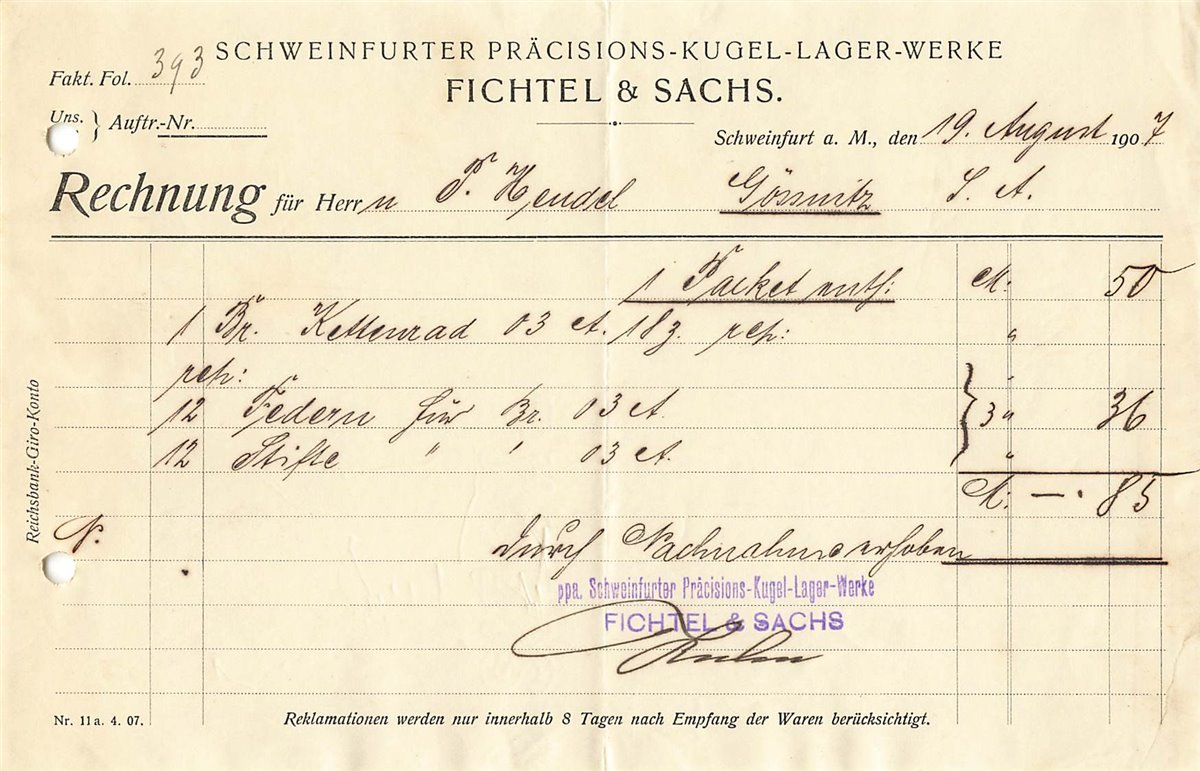 SCHWEINFURTER PRÄCISIONS-KUGEL-LAGER-WERKE
Fakt. Fol. 393
FICHTEL & SACHS.
Uns. } Auftr.-Nr.
Schweinfurt a. M., den 19. August 1907
Rechnung für Herrn P. Hendel Gössnitz S. A.
1 Packet enth: M. 50
1 Br. Kettenrad 03 A. 18z. rep: "
rep: "
12 Federn für Br. 03 A. } 3 " 36
12 Stifte " " 03 A. "
M. —. 85
durch Nachnahme erhoben
ppa. Schweinfurter Präcisions-Kugel-Lager-Werke
FICHTEL & SACHS
Reichsbank-Giro-Konto
Nr. 11a. 4. 07.
Reklamationen werden nur innerhalb 8 Tagen nach Empfang der Waren berücksichtigt.